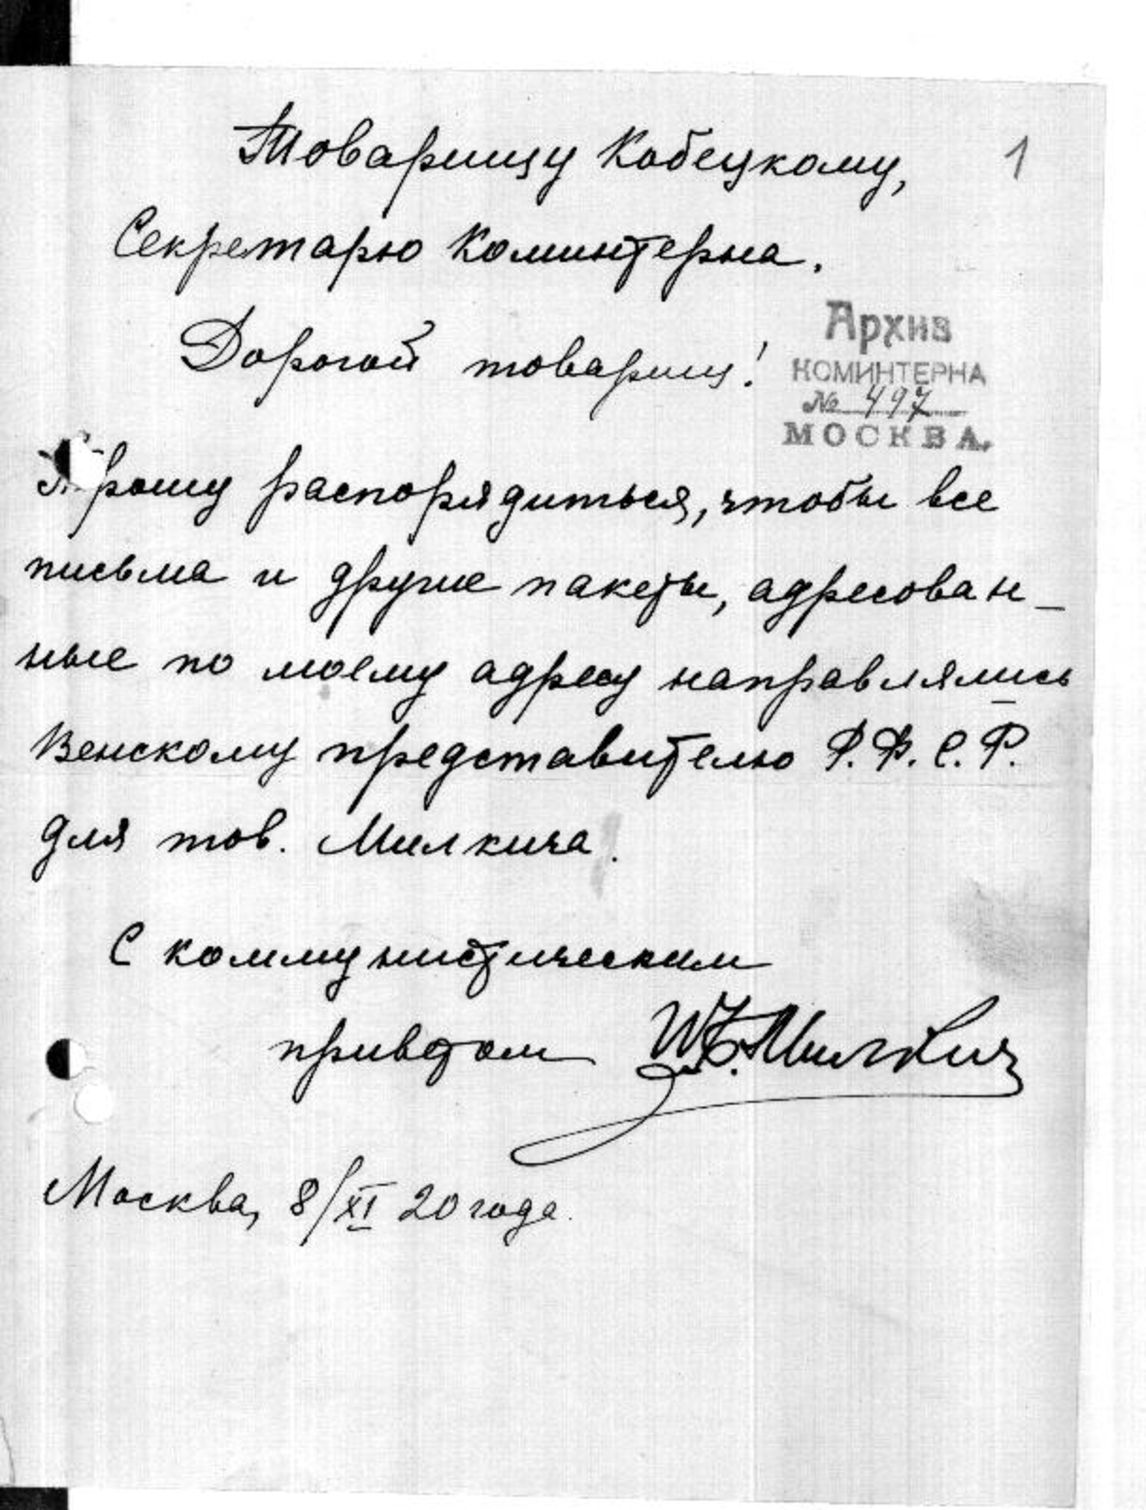 Товарищу Кобецкому,
1
Секретарю Коминтерна.
Дорогой товарищ!
Архив
КОМИНТЕРНА
№ 497
МОСКВА.
Прошу распорядиться, чтобы все
письма и другие пакеты, адресован-
ные по моему адресу направлялись
Венскому представителю Р.Ф.С.Р.
для тов. Милкича.
С коммунистическим
приветом Милкич
Москва, 8/XI 20 года.